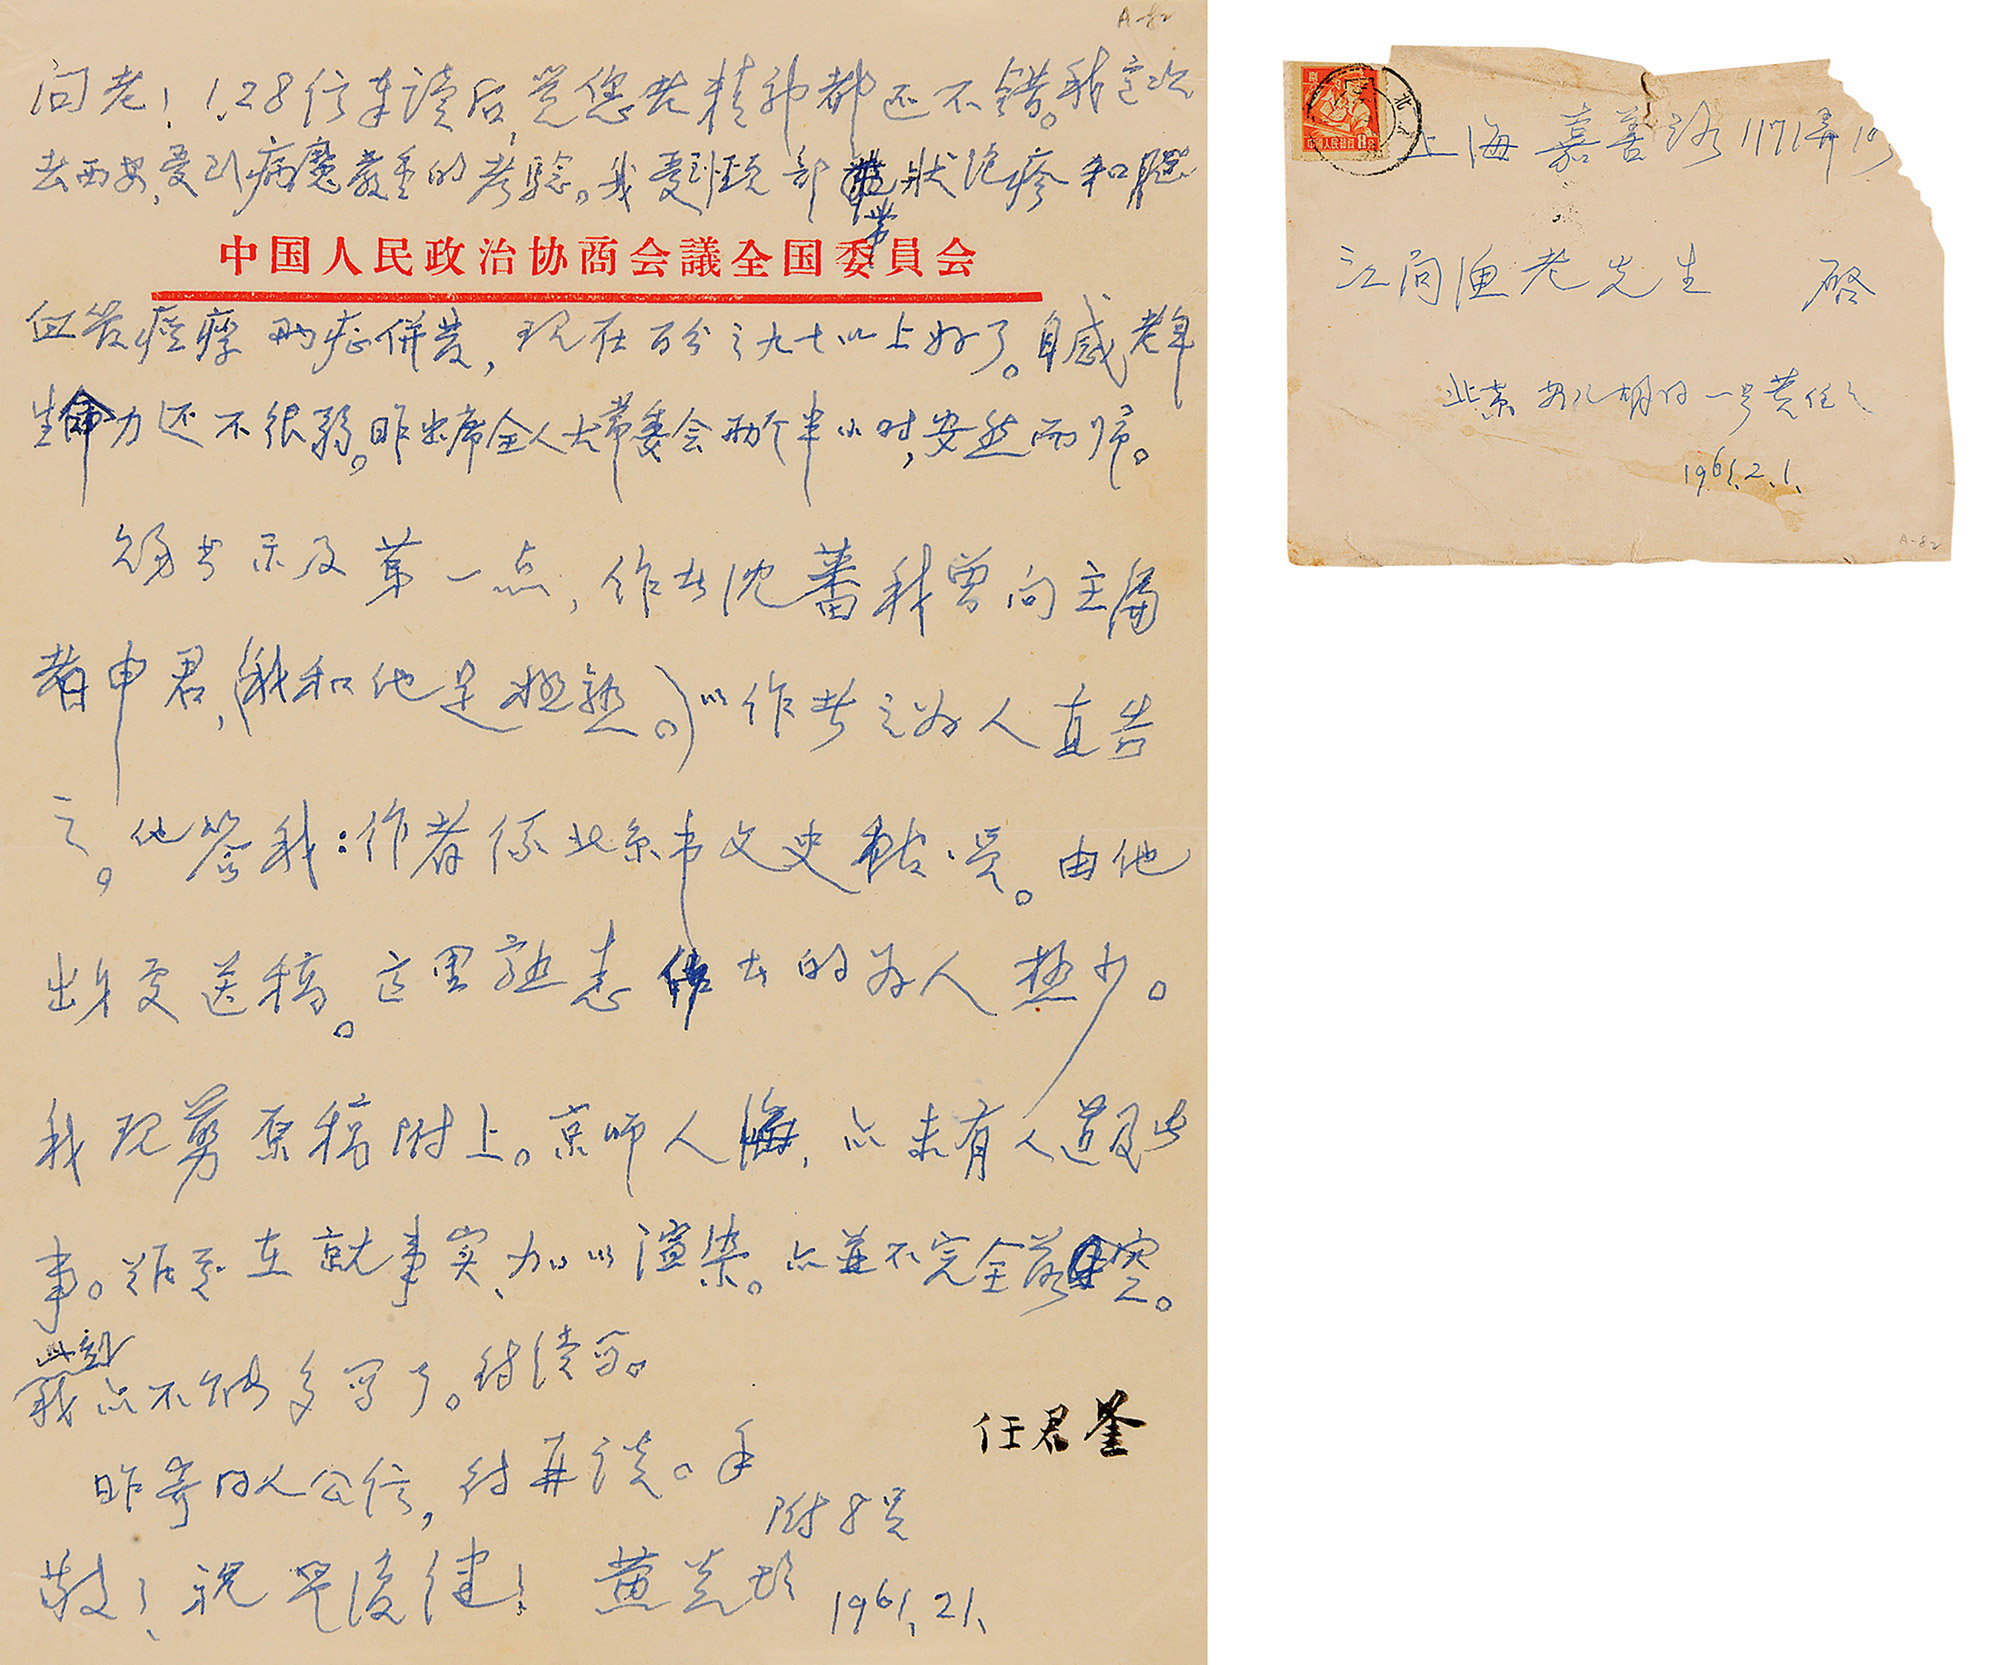 A-82
问老！1,28信奉读后，觉您老精神都还不错。我这次
去西安，受到病魔严重的考验。我受到颈部带状泡疹和脑
中国人民政治协商会議全国委員会
血管痉挛两症併发，现在百分之九十以上好了。自感老年
生命力还不很弱。昨出席全人大常委会两个半小时，安然而归。
示及第一点，作者沈蕃我曾向主编
者申君，(我和他是极熟。)以作者之为人直告
之。他答我：作者係北京市文史馆员。由他
出身交送稿。这里熟悉作者的为人极少。
我现剪原稿附上。京师人海，亦未有人道及此
事。难在就事实，加以渲染。亦並不完全落空。
此刻
我亦不能多写了。待续写。
任君奎
昨寄的人公信，待再谈。手
附8页
敬！祝早復健！黄炎培 1961.2.1.
8
上海嘉善路1171弄10
江问渔老先生 启
北京安儿胡同一号黄任之
1961.2.1.
A-82